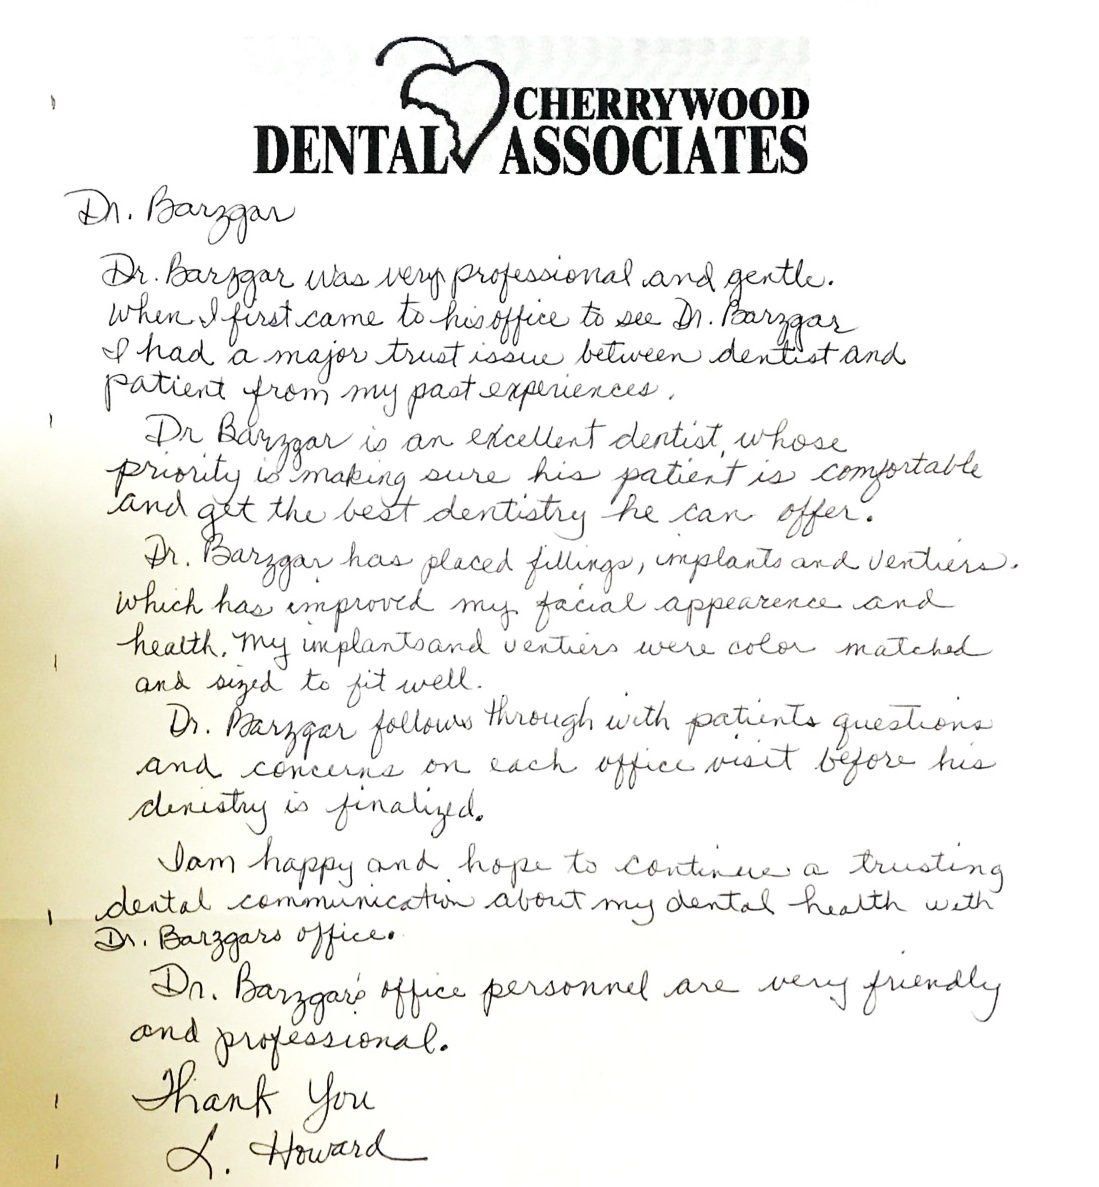 CHERRYWOOD
DENTAL ASSOCIATES
Dr. Barzgar
Dr. Barzgar was very professional and gentle.
When I first came to his office to see Dr. Barzgar
I had a major trust issue between dentist and
patient from my past experiences.
Dr Barzgar is an excellent dentist, whose
priority is making sure his patient is comfortable
and get the best dentistry he can offer.
Dr. Barzgar has placed fillings, implants and ventiers.
which has improved my facial appearence and
health. My implants and ventiers were color matched
and sized to fit well.
Dr. Barzgar follows through with patients questions
and concerns on each office visit before his
denistry is finalized.
I am happy and hope to continue a trusting
dental communication about my dental health with
Dr. Barzgars office.
Dr. Barzgar's office personnel are very friendly
and professional.
Thank You
L. Howard